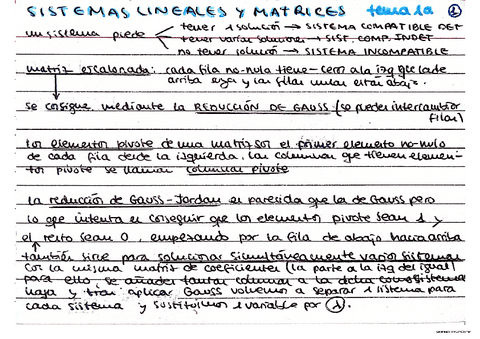 SISTEMAS LINEALES Y MATRICES tema 1a 1
un sistema puede tener 1 solución → SISTEMA COMPATIBLE DET
tener varias soluciones → SIST. COMP. INDET
no tener solución → SISTEMA INCOMPATIBLE
matriz escalonada: cada fila no-nula tiene + ceros a la izq que la de
arriba suya y las filas nulas están abajo.
se consigue mediante la REDUCCIÓN DE GAUSS (se pueden intercambiar
filas)
los elementos pivote de una matriz son el primer elemento no-nulo
de cada fila desde la izquierda. Las columnas que tienen elemen-
tos pivote se llaman columnas pivote
la reducción de Gauss-Jordan es parecida que la de Gauss pero
lo que intenta es conseguir que los elementos pivote sean 1 y
el resto sean 0, empezando por la fila de abajo hacia arriba
también sirve para solucionar simultáneamente varios sistemas
con la misma matriz de coeficientes (la parte a la izq del igual)
para ello, se añaden tantas columnas a la dcha como sistemas
haya y tras aplicar Gauss volvemos a separar 1 sistema para
cada sistema y sustituimos 1 variable por λ.